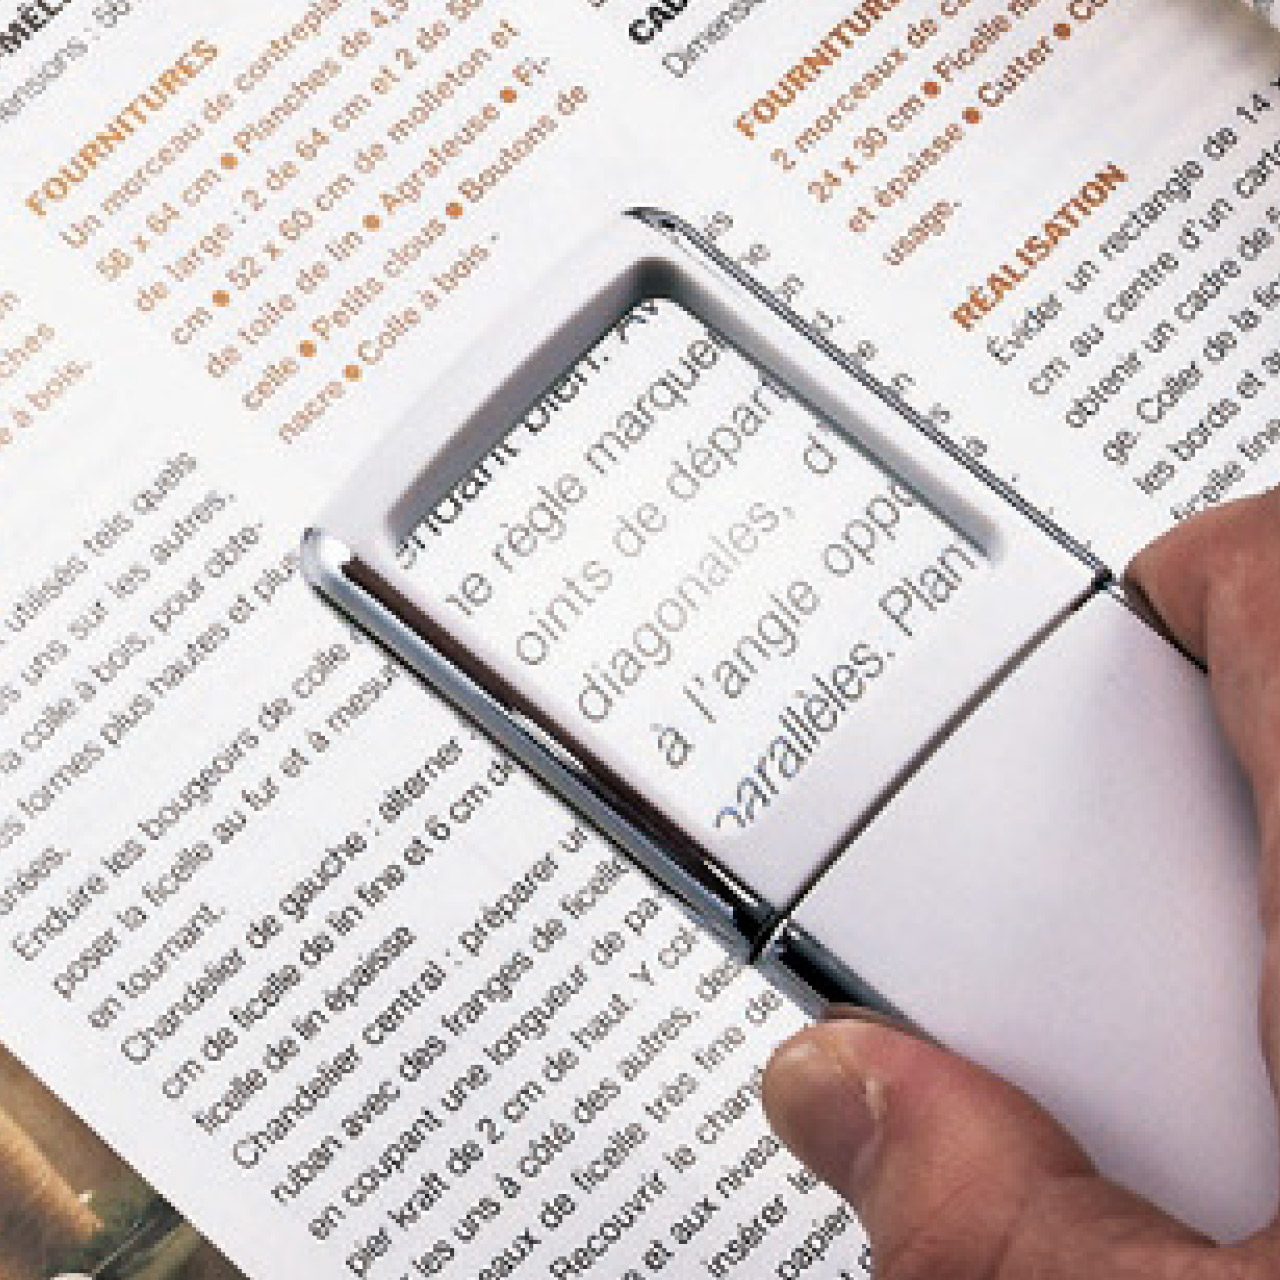 FOURNITURES
Un morceau de contrepla
56 x 64 cm ● Planches de 4,5
de large : 2 de 64 cm et 2 de 56
cm ● 52 x 60 cm de molleton et
de toile de lin ● Agrafeuse ● Fi-
celle ● Petits clous ● Boutons de
nacre ● Colle à bois.
ches
e à bois.
utilisés tels quels
s uns sur les autres,
la colle à bois, pour obte-
formes plus hautes et plus
Enduire les bougeoirs de colle
poser la ficelle au fur et à mesur
en tournant.
Chandelier de gauche : alterner
cm de ficelle de lin fine et 6 cm de
ficelle de lin épaisse
Chandelier central : préparer un
ruban avec des franges de ficelle
en coupant une longueur de pa
pier kraft de 2 cm de haut. Y col
les uns à côté des autres, des
eaux de ficelle très fine de
Recouvrir le chand
et aux nivea
insérer le
papier
endant bien. Av
ne règle marque
oints de départ
diagonales, d
à l'angle oppo
parallèles. Plan
CAD
Dimensi
FOURNITURE
2 morceaux de ca
24 x 30 cm ● Ficelle
et épaisse ● Cutter ● Co
usage.
RÉALISATION
Évider un rectangle de 14 x
cm au centre d'un carto
obtenir un cadre de
ge. Coller de la fic
les bords et
ficelle fine